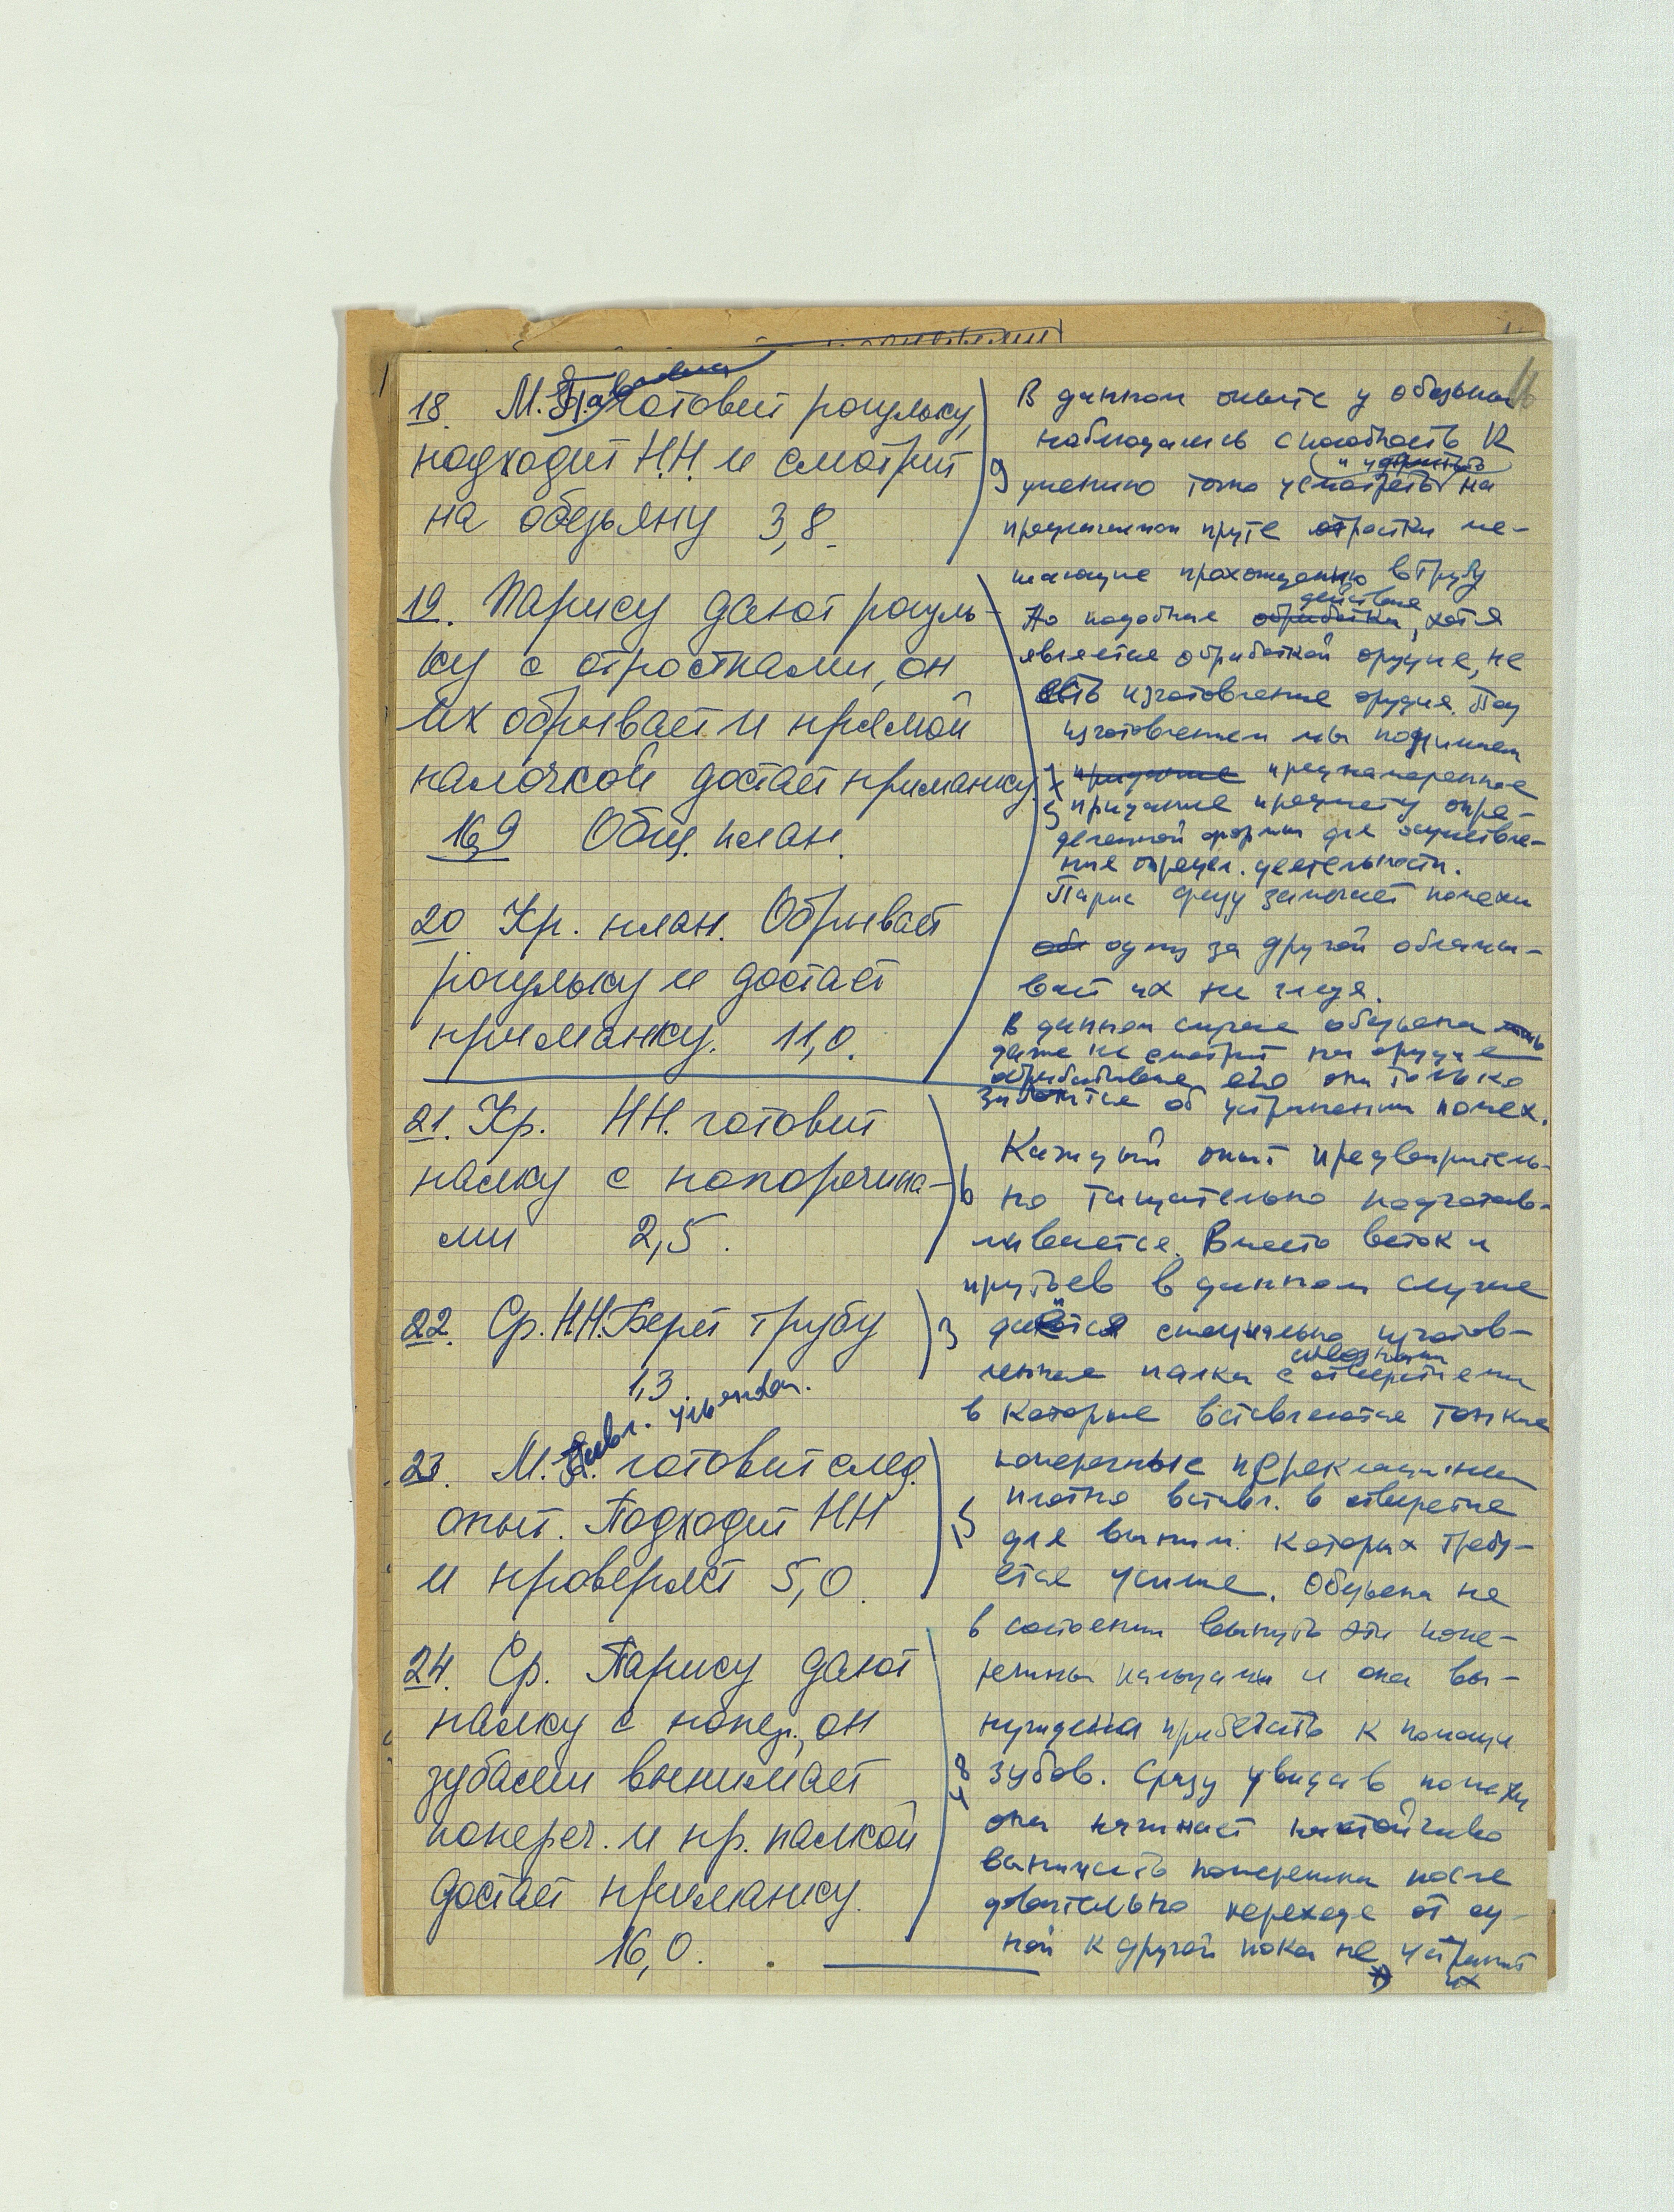 18. М. готовит рогульку,
подходит Н.Н. и смотрит
на обезьяну 3,8.
19. Парису дают рогуль-
ку с отростками, он
их обрывает и прямой
палочкой достает приманку.
16,9 Общ. план.
20 Кр. план. Обрывает
рогульку и достает
приманку. 11,0.
21. Кр. Н.Н. готовит
палку с поперечина-
ми 2,5.
22. Ср. Н.Н. Берет трубу
1,3.
23. М. готовит след.
опыт. Подходит НН
и проверяет 5,0.
24. Ср. Парису дают
палку с попер., он
зубами вынимает
попереч. и пр. палкой
достает приманку.
16,0.
В данном опыте у обезьяны
наблюдались способность к
9 умению точно усмотреть на
предлагаемом пруте отростки ме-
шающие прохождению в трубу
действия
Но подобные обработки, хотя
является обработкой орудия, не
есть изготовление орудия. Под
изготовлением мы понимаем
придание преднамеренное
придание предмету опре-
деленной формы для осуществле-
ния определ. деятельности.
Парис сразу замечает помехи
одну за другой обламы-
вает их не глядя.
В данном случае обезьяна
даже не смотрит на орудие
обрабатывая его она только
заботится об устранении помех.
Каждый опыт предваритель-
6 но тщательно подготав-
ливается. Вместо веток и
прутьев в данном случае
3 даётся специально изготов-
сквозными
ленная палка с отверстиями
в которые вставляются тонкие
поперечные перекладинки
плотно вставл. в отверстие
15 для выним. которых требу-
ется усилие. Обезьяна не
в состоянии вынуть эти попе-
речины пальцами и она вы-
нуждена прибегать к помощи
зубов. Сразу увидав помехи
она начинает настойчиво
вынимать поперечины после
довательно переходя от од-
ной к другой пока не устранит
их